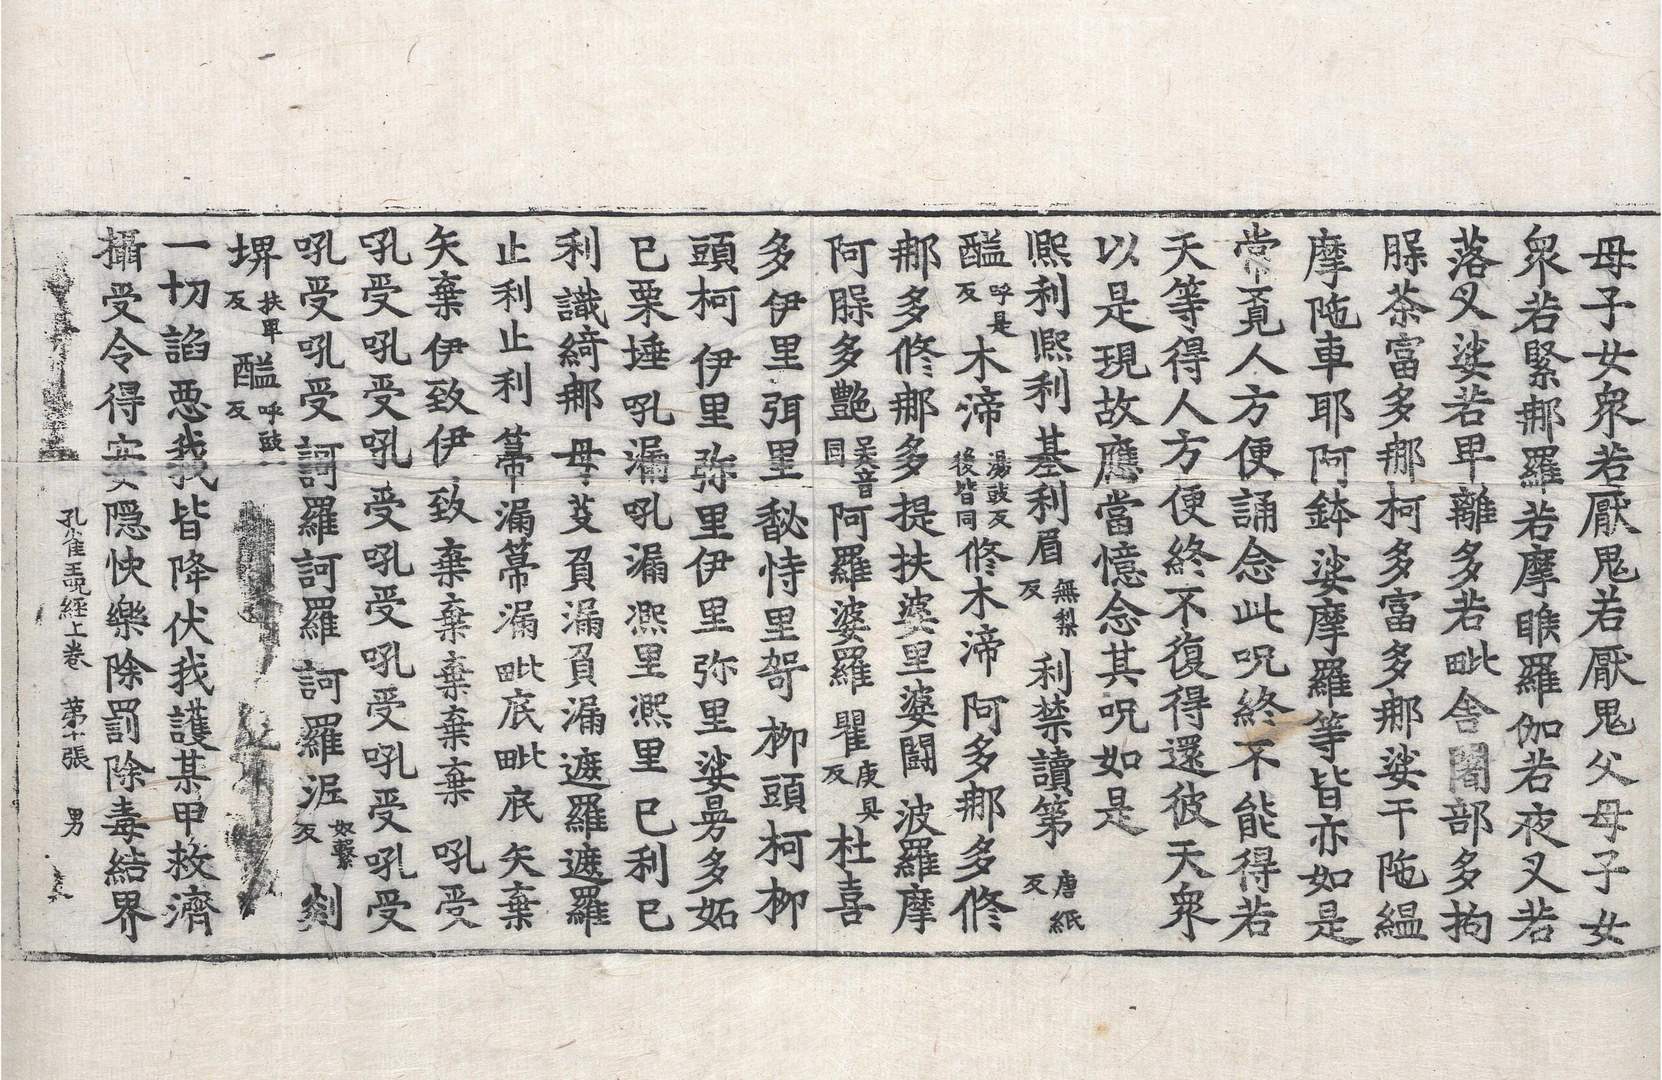 母子女衆若厭鬼若厭鬼父母子女
衆若緊那羅若摩睺羅伽若夜叉若
落叉娑若卑離多若毗舍闍部多拘
腺茶富多那柯多富多那娑干陁緼
摩陁車耶阿鉢娑摩羅等皆亦如是
常覓人方便誦念此呪終不能得若
天等得人方便終不復得還彼天衆
以是現故應當憶念其呪如是
熈利熈利基利眉無梨反利禁讀第唐紙反
醯呼是反木渧湯豉反後皆同修木渧阿多那多修
那多修那多提扶婆里婆鬪波羅摩
阿腺多艷吴音同阿羅婆羅瞿庚具反杜喜
多伊里弭里馝恃里哿柳頭柯柳
頭柯伊里弥里伊里弥里娑昜多妬
巳栗埵吼漏吼漏凞里凞里巳利巳
利識綺那母芟負漏負漏遮羅遮羅
止利止利箒漏箒漏毗底毗底矢棄
矢棄伊致伊致棄棄棄棄棄吼受
吼受吼受吼受吼受吼受吼受吼受
吼受吼受訶羅訶羅訶羅泥奴繫反剡
堺扶卑反醯呼豉反
一切諂惡我皆降伏我護某甲救濟
攝受令得安隱快樂除罰除毒結界
孔雀王呪經上卷 第十張 男